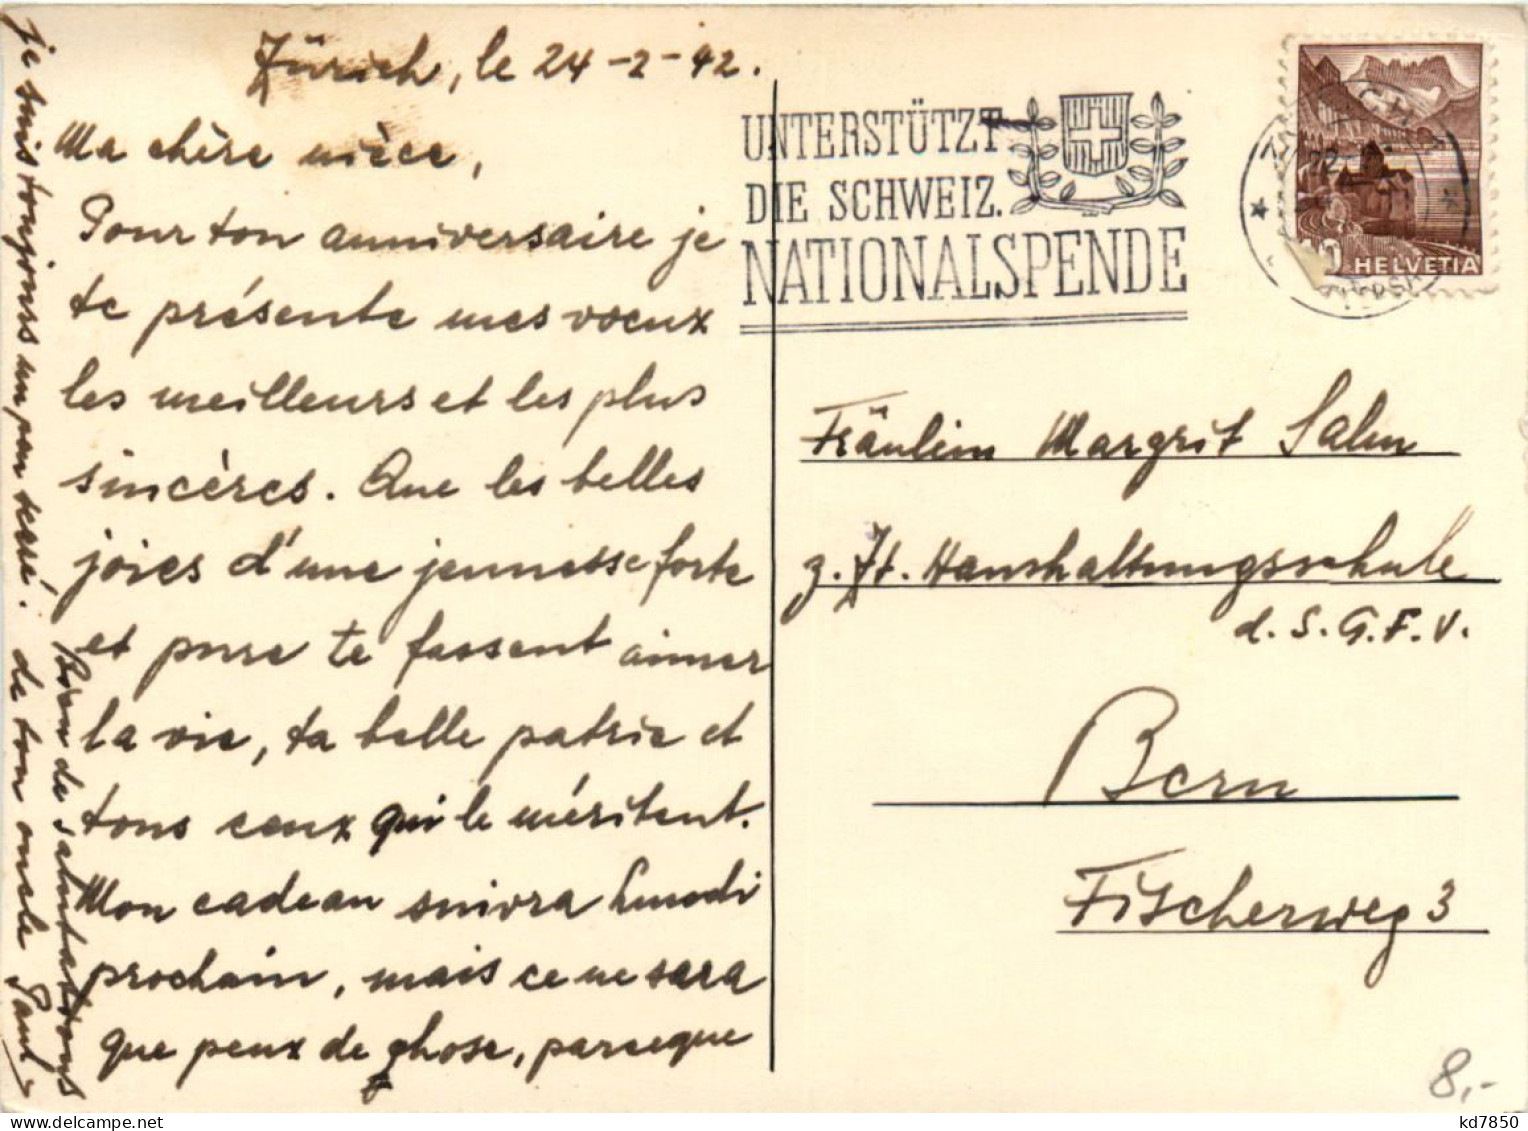 Zürich, le 24-2-42.
Ma chère nièce,
Pour ton anniversaire je
te présente mes voeux
les meilleurs et les plus
sincères. Que les belles
joies d'une jeunesse forte
et pure te fassent aimer
la vie, ta belle patrie et
tous ceux qui le méritent.
Mon cadeau suivra Lundi
prochain, mais ce ne sera
que peux de chose, parceque
je suis toujours un peu serré.
Bien de salutations
de ton oncle Paul
UNTERSTÜTZT
DIE SCHWEIZ.
NATIONALSPENDE
10 HELVETIA
Fräulein Margrit Salm
z. Zt. Haushaltungsschule
d. S. G. F. V.
Bern
Fischerweg 3
8,-
kd7850